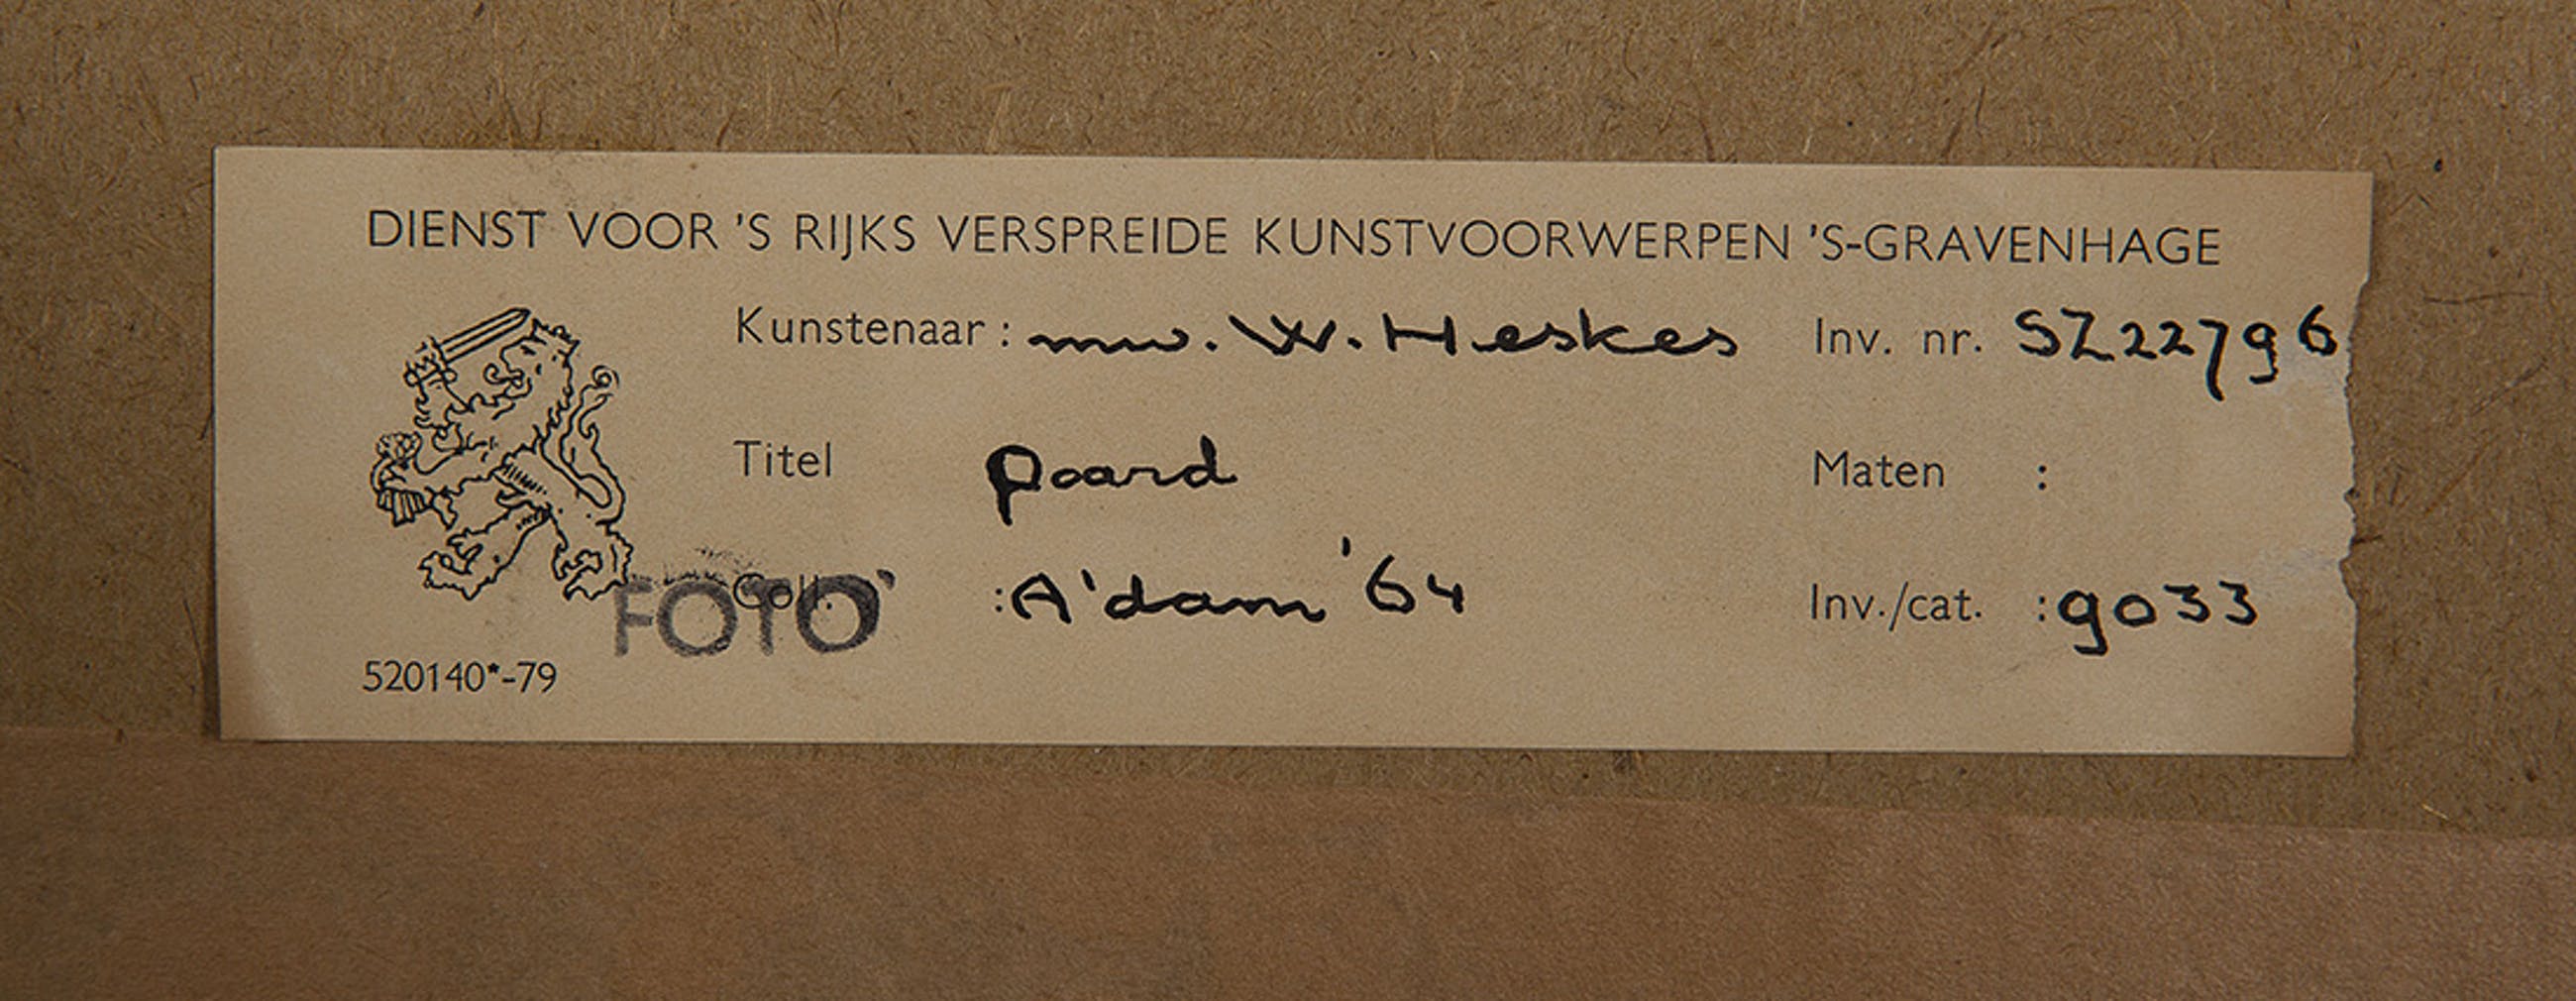 DIENST VOOR 'S RIJKS VERSPREIDE KUNSTVOORWERPEN 'S-GRAVENHAGE
Kunstenaar : mw. W. Heskes Inv. nr. SZ22796
Titel paard Maten :
Coll. : A'dam '64 Inv./cat. : 9033
FOTO
520140*-79